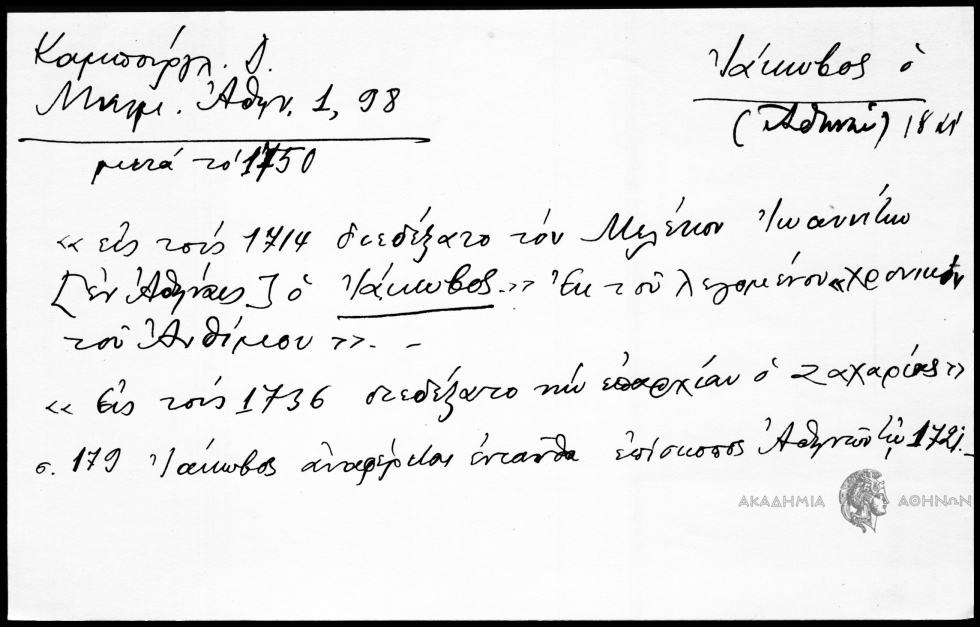 Καμπούρογλ. Δ.
Μνημ. Ἀθην. 1, 98
μετά το 1750
Ἰάκωβος ὁ
(Ἀθηναι) 18
« εἰς τοὺς 1714 διεδέξατο τόν Μελέτιον Ἰωαννίτην
[ἐν Ἀθήναις] ὁ Ἰάκωβος.» Ἐκ τοῦ λεγομένου «χρονικοῦ
τοῦ Ἀνθίμου ». –
« Εἰς τοὺς 1736 διεδέξατο τήν ἐπαρχίαν ὁ Ζαχαρίας »
σ. 179 Ἰάκωβος ἀναφέρεται ἐνταῦθα ἐπίσκοπος Ἀθηνῶν τῷ 1721.–
ΑΚΑΔΗΜΙΑ ΑΘΗΝΩΝ